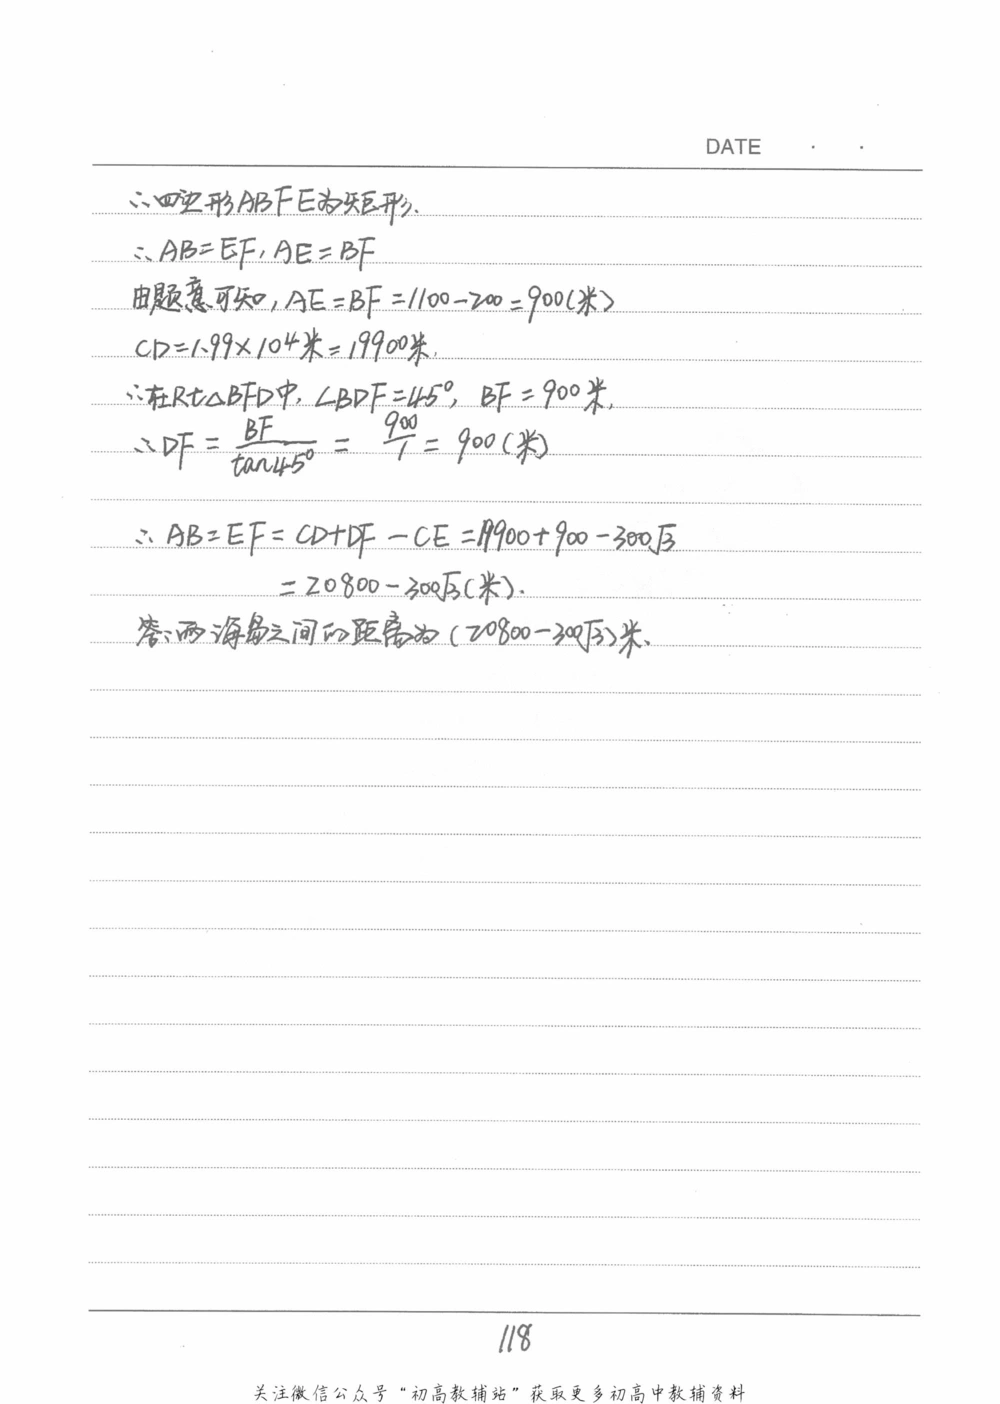 DATE · ·
∴四边形ABFE为矩形.
∴AB=EF,AE=BF
由题意可知,AE=BF=1100-200=900(米)
CD=1.99×10⁴米=19900米.
∴在Rt△BFD中,∠BDF=45°, BF=900米,
∴DF=BF/tan45°=900/1=900(米)
∴AB=EF=CD+DF-CE=19900+900-300√3
=20800-300√3(米).
答:两海岛之间的距离为(20800-300√3)米.
118
关注微信公众号“初高教辅站”获取更多初高中教辅资料